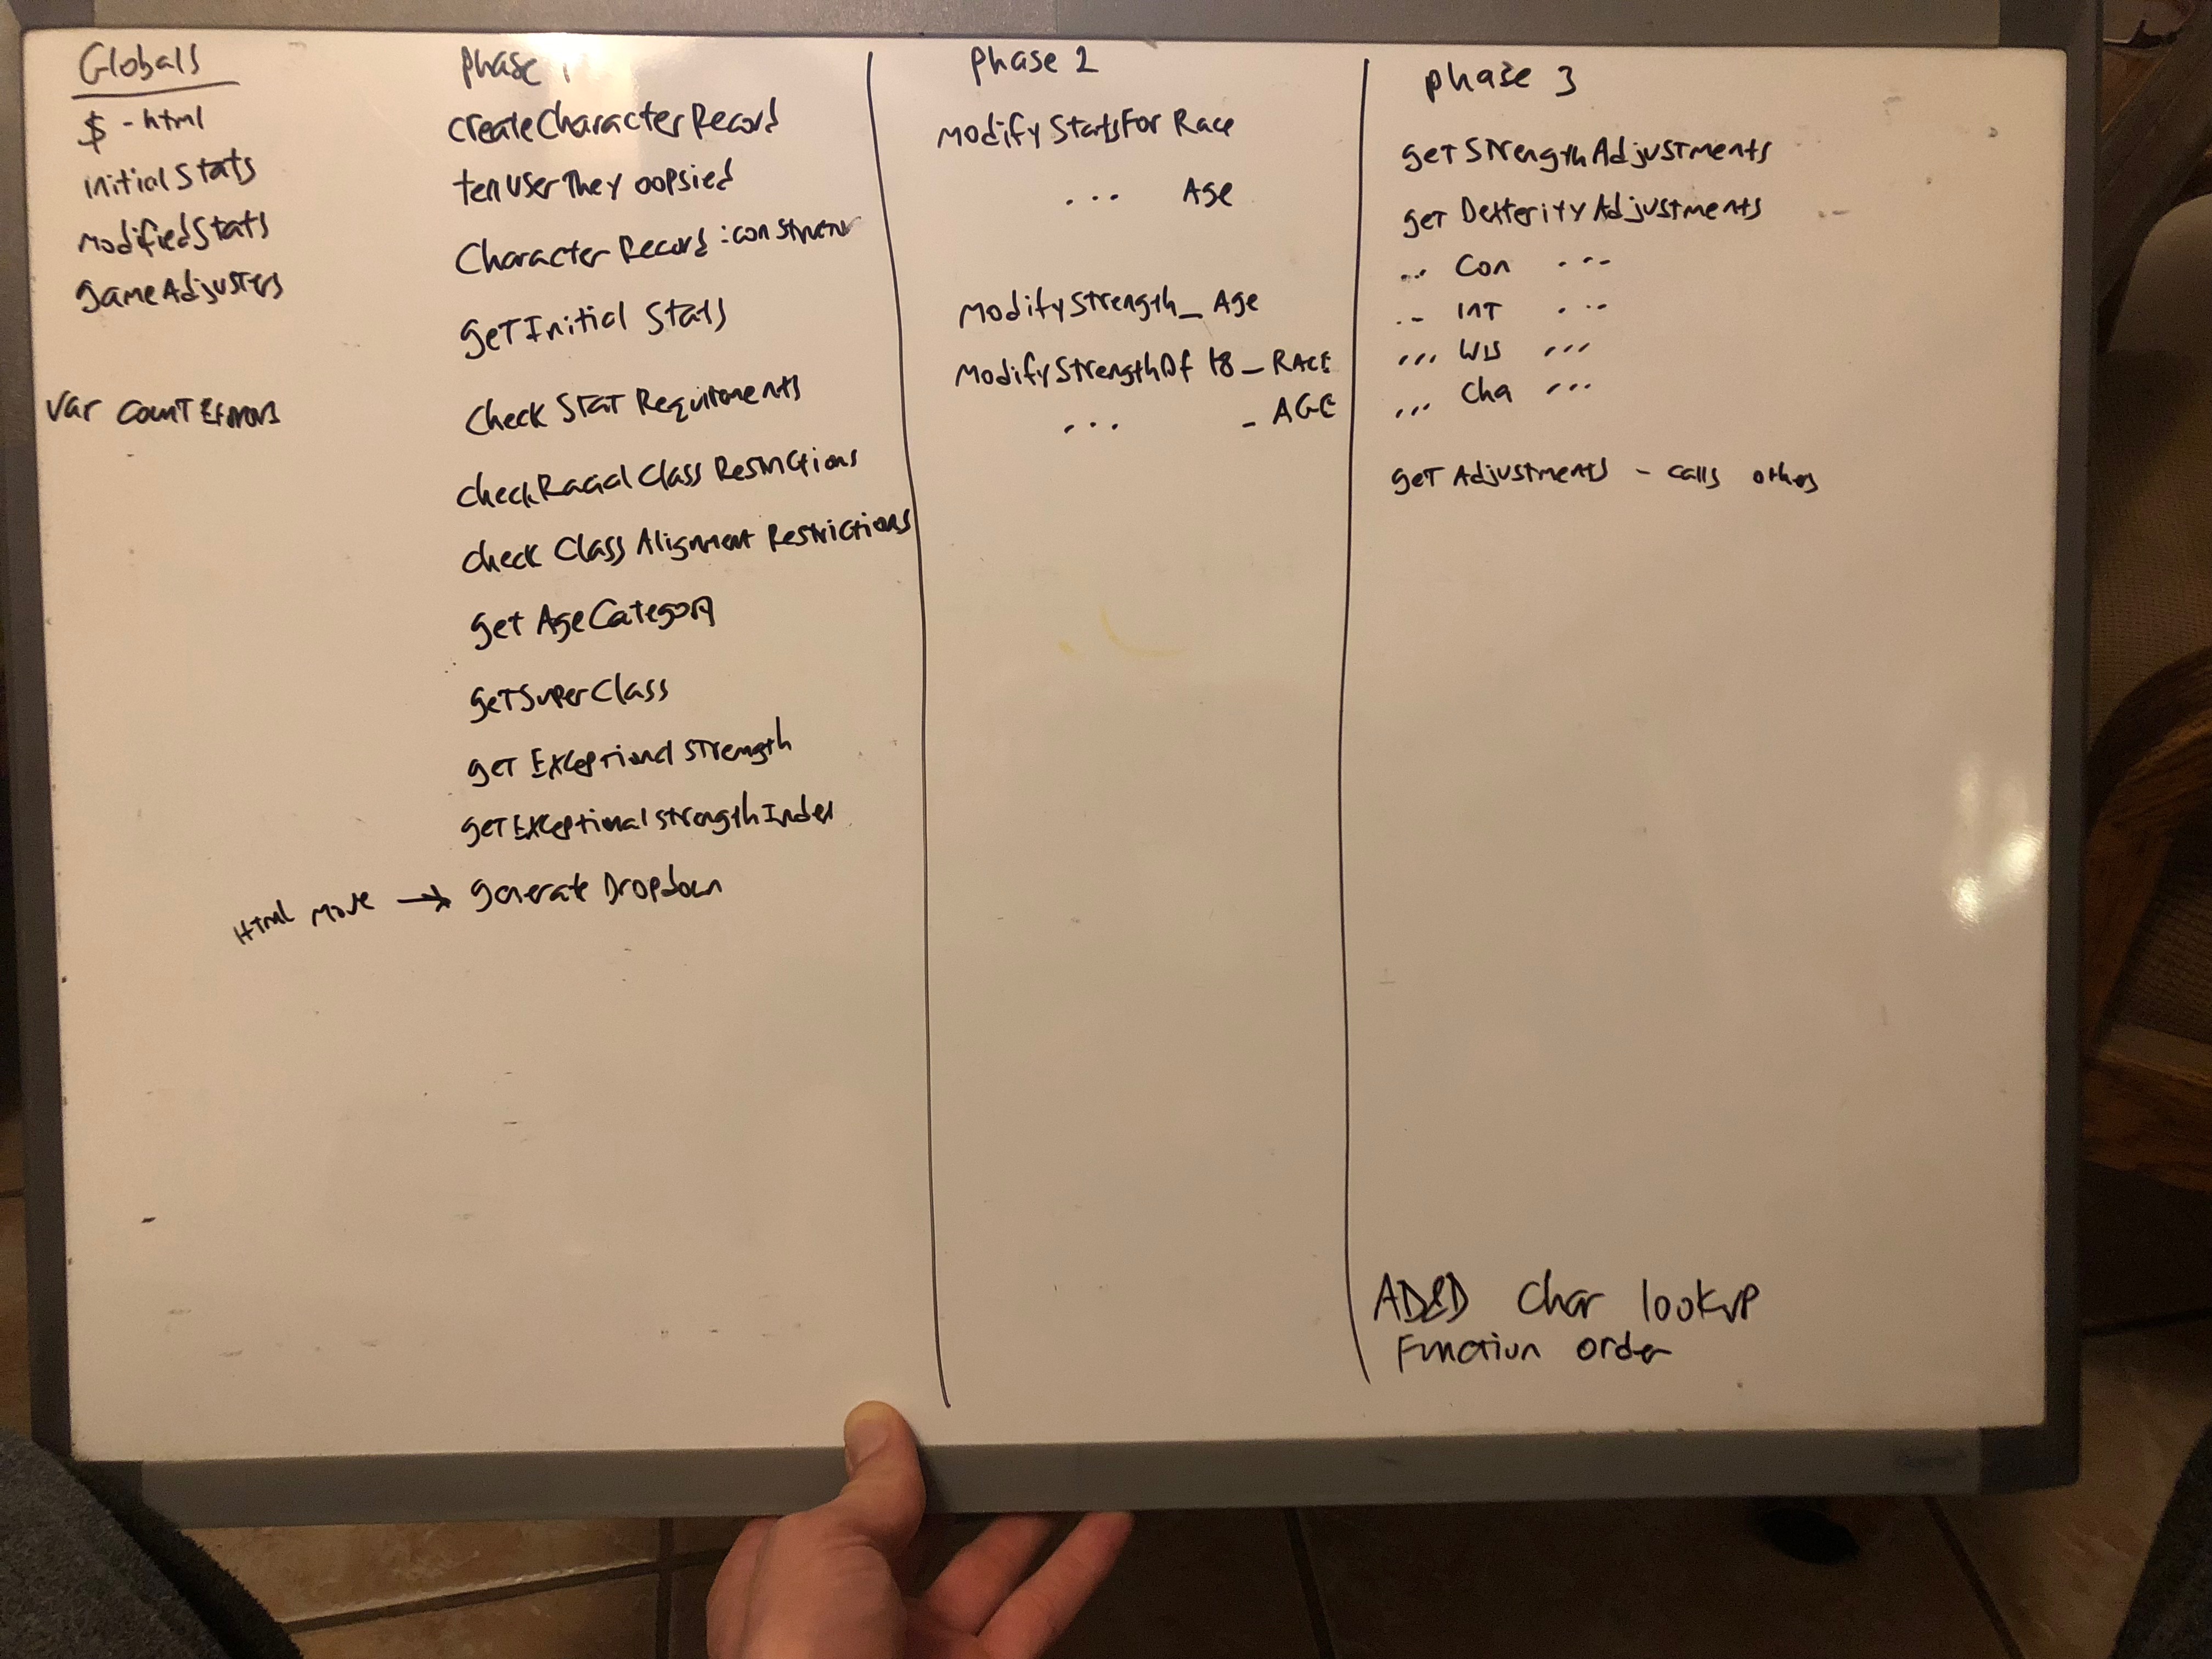 Globals
$ - html
initialStats
modifiedStats
gameAdjusters
var countErrors
Phase 1
createCharacterRecord
tellUserThey oopsied
CharacterRecord:constructor
getInitial Stats
Check Stat Requirements
checkRacial Class Restrictions
check Class Alignment Restrictions
get AgeCategory
getSuperClass
get Exceptional strength
getExceptionalstrengthIndex
Html move → generate Dropdown
Phase 2
modifyStatsFor Race
... Age
modifyStrength_Age
modifyStrengthOf 18_RACE
... _AGE
phase 3
getStrengthAdjustments
get DexterityAdjustments
... Con ...
... INT ...
... WIS ...
... Cha ...
get Adjustments - calls others
AD&D Char lookup
Function order